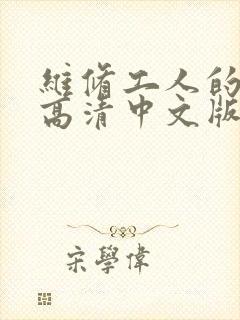 維脩工人的
高清中文版
宋學偉